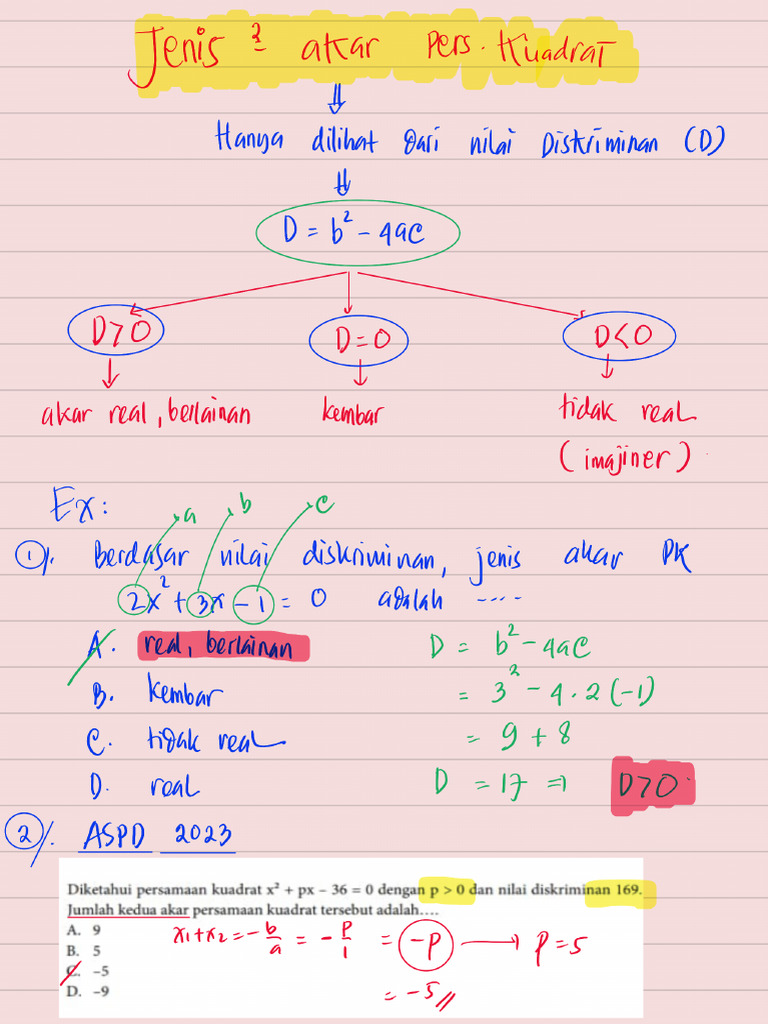 Jenis² akar Pers. Kuadrat
⇓
Hanya dilihat dari nilai Diskriminan (D)
⇓
D = b² - 4ac
D>0 D=0 D<0
akar real, berlainan kembar tidak real
(imajiner)
Ex: a b c
1/. Berdasar nilai diskriminan, jenis akar PK
2x² + 3x - 1 = 0 adalah ----
A. real, berlainan D = b² - 4ac
B. kembar = 3² - 4 . 2 (-1)
C. tidak real = 9 + 8
D. real D = 17 ⇒ D>0
2/. ASPD 2023
Diketahui persamaan kuadrat x² + px – 36 = 0 dengan p > 0 dan nilai diskriminan 169.
Jumlah kedua akar persamaan kuadrat tersebut adalah....
A. 9 x₁+x₂ = -b/a = -p/1 = -p → p = 5
B. 5
C. –5
D. –9 = -5//